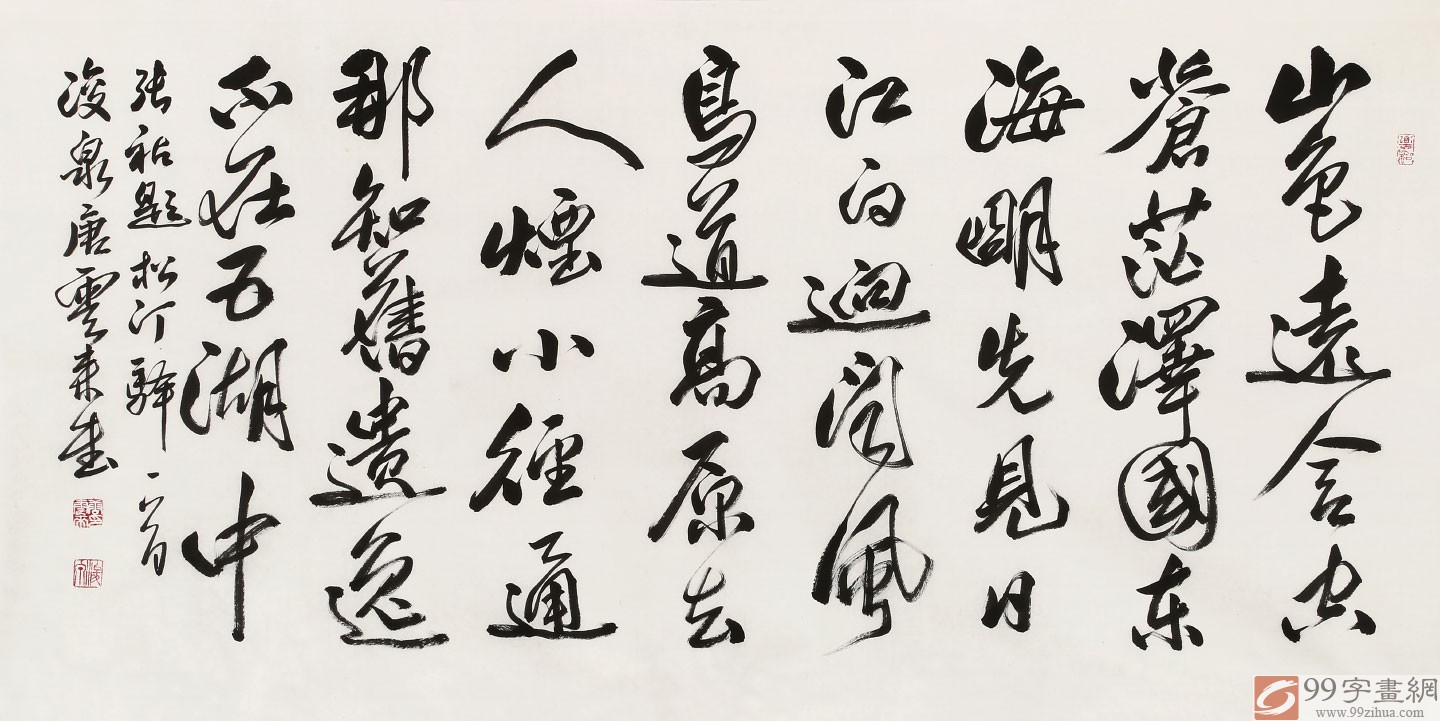 山色遠含空
蒼茫澤國東
海明先見日
江白迥聞風
鳥道高原去
人煙小徑通
那知舊遺逸
不在五湖中
張祜題松汀驛一首
浚泉唐雲來書
99字畫網
www.99zihua.com